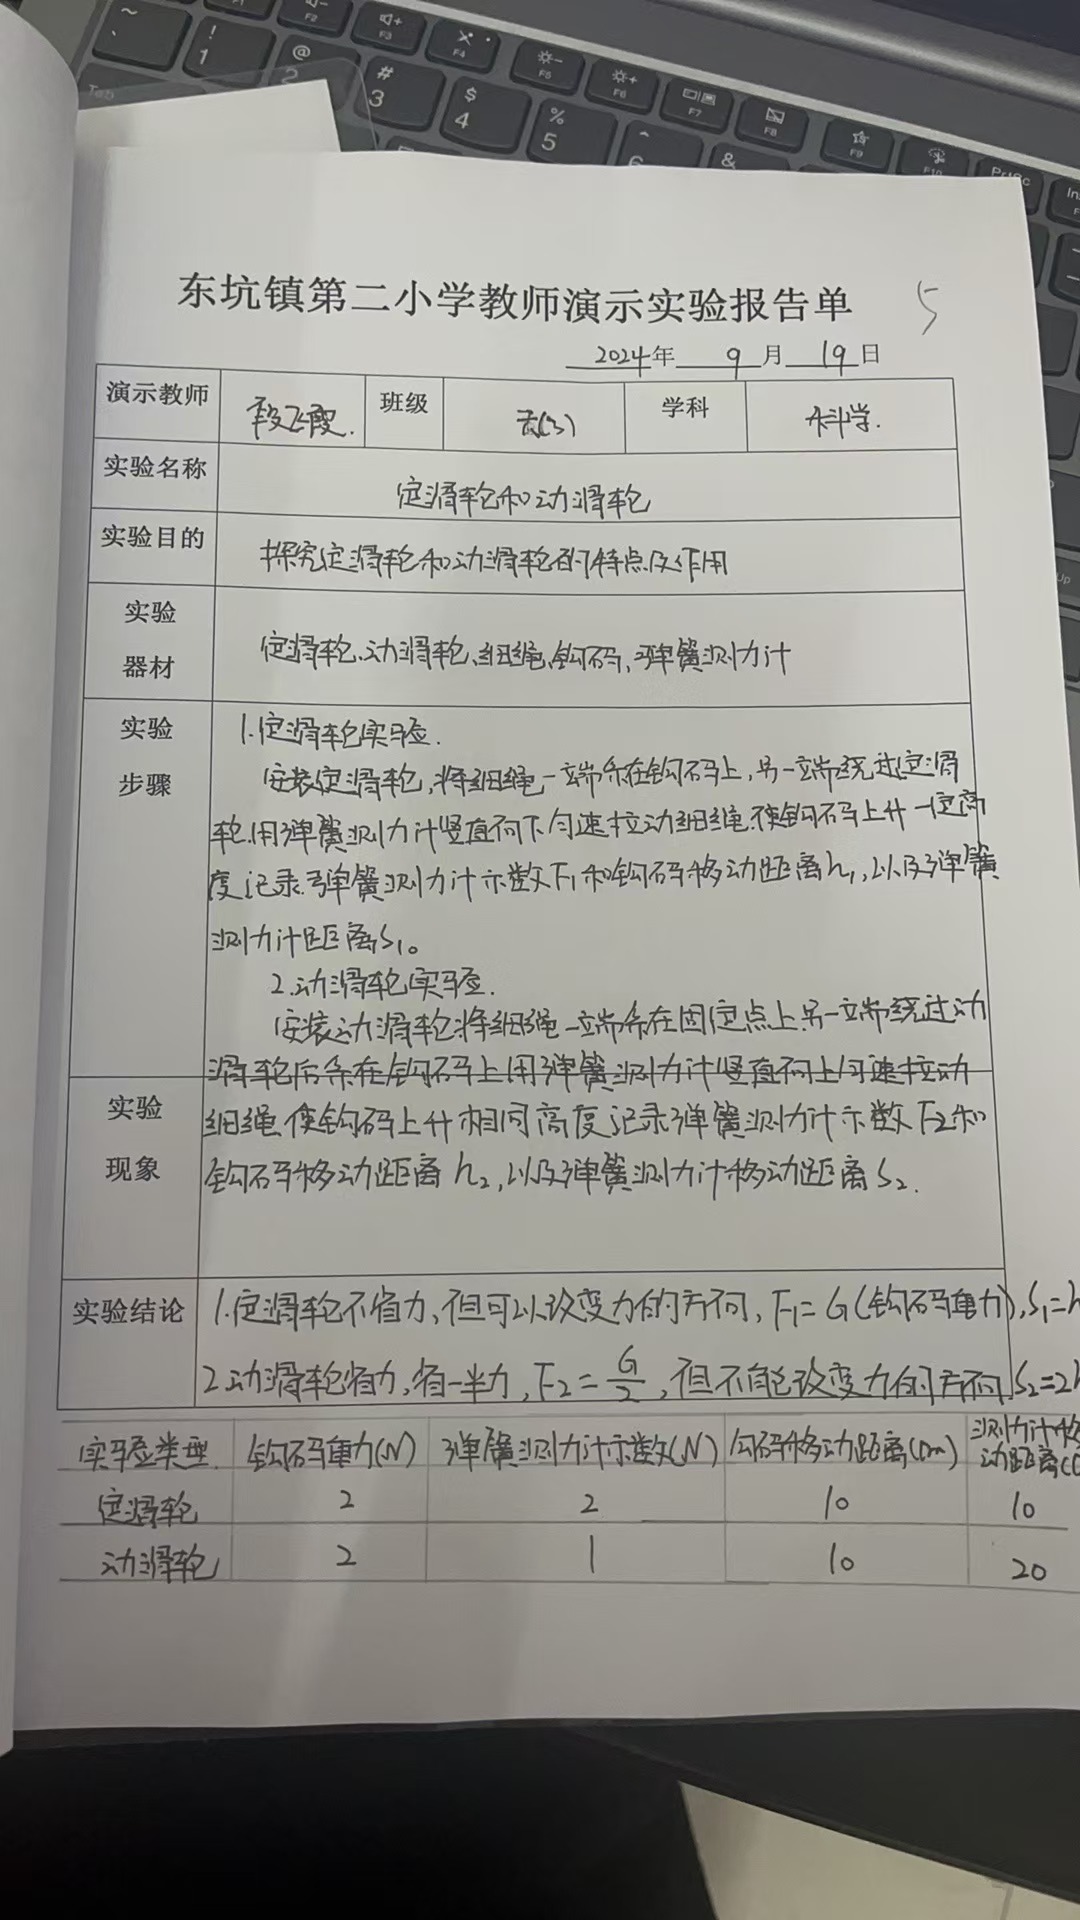 ~
`
!
1
@
2
#
3
$
4
%
5
^
6
&
F2
F3
F4
F5
F6
F7
F8
F9
F10
PrtSc
Tab
东坑镇第二小学教师演示实验报告单 5
2024年 9月 19日
演示教师 段飞霞. 班级 (3) 学科 科学.
实验名称 定滑轮和动滑轮
实验目的 探究定滑轮和动滑轮的特点及作用
实验
器材
定滑轮、动滑轮、细绳、钩码、弹簧测力计
实验
步骤
1.定滑轮实验.
安装定滑轮,将细绳一端系在钩码上,另一端绕过定滑
轮,用弹簧测力计竖直向下匀速拉动细绳.使钩码上升一定高
度.记录弹簧测力计示数F₁和钩码移动距离h₁,以及弹簧
测力计距离S₁。
2.动滑轮实验.
安装动滑轮.将细绳一端系在固定点上.另一端绕过动
滑轮后系在钩码上.用弹簧测力计竖直向上匀速拉动
实验
现象
细绳.使钩码上升相同高度.记录弹簧测力计示数F₂和
钩码移动距离h₂,以及弹簧测力计移动距离S₂.
实验结论
1.定滑轮不省力,但可以改变力的方向,F₁=G(钩码重力),S₁=h
2.动滑轮省力,省一半力,F₂=G/2,但不能改变力的方向 S₂=2h
实验类型 钩码重力(N) 弹簧测力计示数(N) 勾码移动距离(cm) 测力计移
动距离(c
定滑轮 2 2 10 10
动滑轮 2 1 10 20